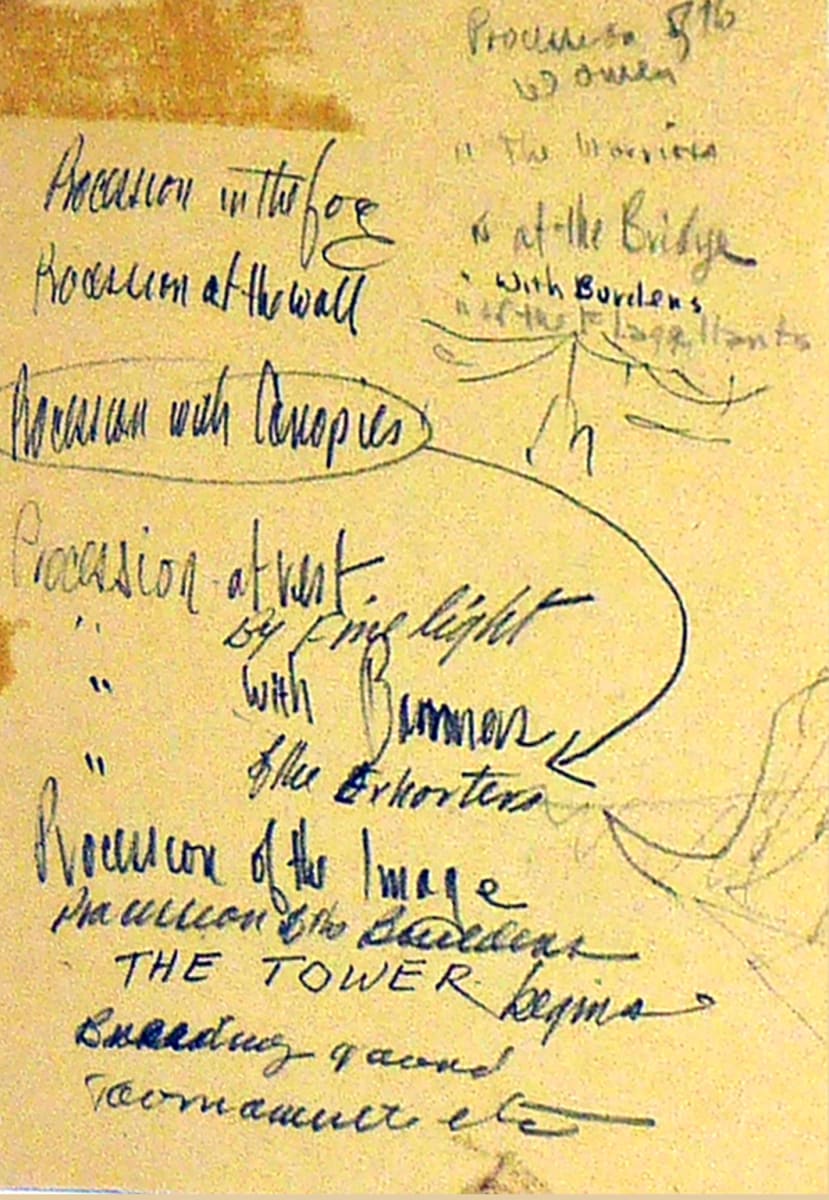 Procession of the
Women
" The Warriors
" at the Bridge
" with Burdens
" of the Flagellants
Procession in the fog
Procession at the wall
Procession with Canopies
Procession at rest
" by Fire light
" with Banners
" of the Exhorters
Procession of the Image
Procession of the Builders
THE TOWER begins
Tournament etc